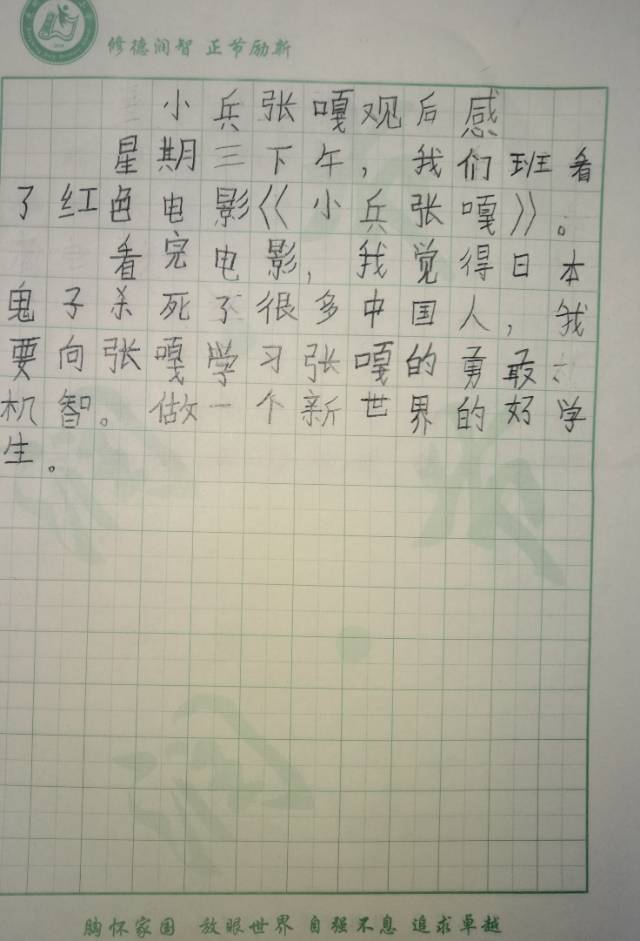 修德润智 正节励新
小兵张嘎观后感
星期三下午，我们班看
了红色电影《小兵张嘎》。
看完电影，我觉得日本
鬼子杀死了很多中国人，我
要向张嘎学习张嘎的勇敢、
机智。做一个新世界的好学
生。
胸怀家国 放眼世界 自强不息 追求卓越